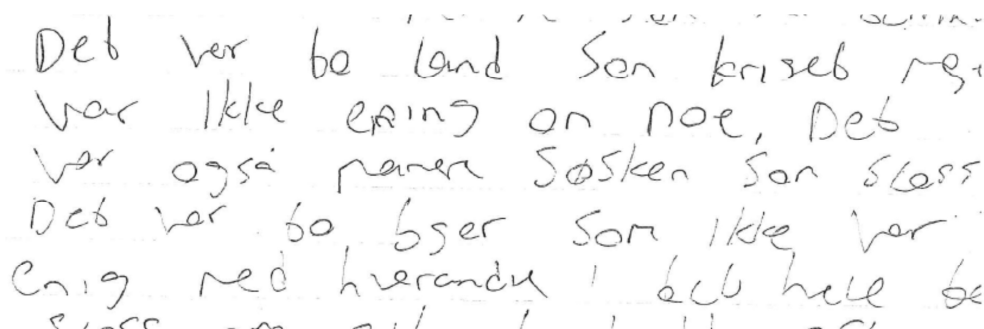 Det var to land Som kriset
var Ikke ening om noe, Det
var også mamen Søsken Som sloss
Det var to byer Som ikke var
Enig med hverandre i hele